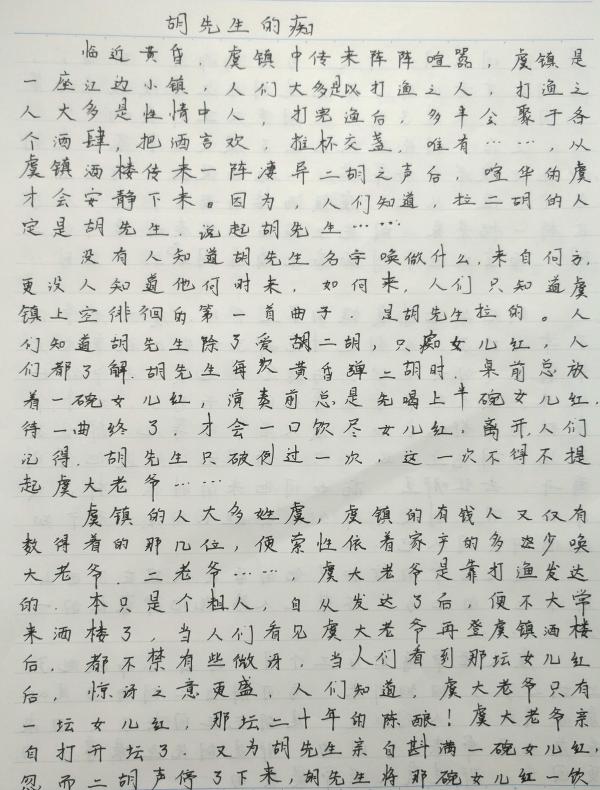 胡先生的痴
临近黄昏，虞镇中传来阵阵喧嚣，虞镇是
一座江边小镇，人们大多是以打渔之人，打渔之
人大多是性情中人，打完渔后，多半会聚于各
个酒肆，把酒言欢，推杯交盏，唯有……，从
虞镇酒楼传来一阵凄异二胡之声后，喧华的虞
才会安静下来。因为，人们知道，拉二胡的人
定是胡先生，说起胡先生……
没有人知道胡先生名字唤做什么，来自何方，
更没人知道他何时来，如何来，人们只知道虞
镇上空徘徊的第一首曲子，是胡先生拉的。人
们知道胡先生除了爱胡二胡，只痴女儿红，人
们都了解，胡先生每次黄昏弹二胡时，桌前总放
着一碗女儿红，演奏前总是先喝上半碗女儿红，
待一曲终了，才会一口饮尽女儿红，离开，人们
记得，胡先生只破例过一次，这一次不得不提
起虞大老爷……
虞镇的人大多姓虞，虞镇的有钱人又仅有
数得着的那几位，便索性依着家产的多少唤
大老爷，二老爷……，虞大老爷是靠打渔发达
的，本只是个粗人，自从发达了后，便不大学
来酒楼了，当人们看见虞大老爷再登虞镇酒楼
后，都不禁有些微讶，当人们看到那坛女儿红
后，惊讶之意更盛，人们知道，虞大老爷只有
一坛女儿红，那坛二十年的陈酿！虞大老爷亲
自打开坛了，又为胡先生亲自斟满一碗女儿红，
忽而二胡声停了下来，胡先生将那碗女儿红一饮